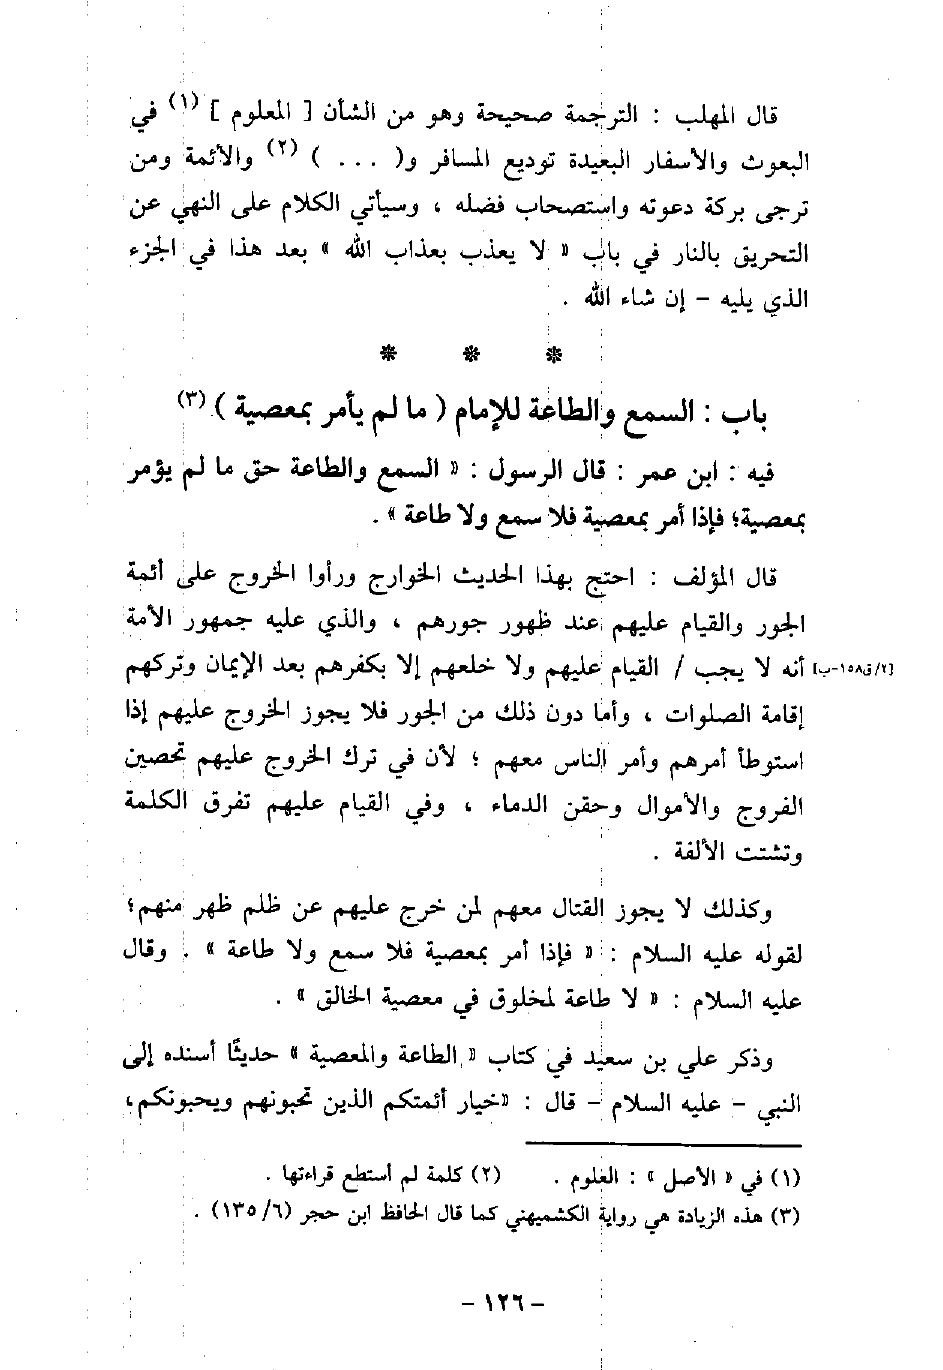 قال المهلب : الترجمة صحيحة وهو من الشأن [ المعلوم ] (١) في
البعوث والأسفار البعيدة توديع المسافر و( . . . ) (٢) والأئمة ومن
ترجى بركة دعوته واستصحاب فضله ، وسيأتي الكلام على النهي عن
التحريق بالنار في باب « لا يعذب بعذاب الله » بعد هذا في الجزء
الذي يليه – إن شاء الله .
* * *
باب : السمع والطاعة للإمام ( ما لم يأمر بمعصية ) (٣)
فيه : ابن عمر : قال الرسول : « السمع والطاعة حق ما لم يؤمر
بمعصية؛ فإذا أمر بمعصية فلا سمع ولا طاعة » .
قال المؤلف : احتج بهذا الحديث الخوارج ورأوا الخروج على أئمة
الجور والقيام عليهم عند ظهور جورهم ، والذي عليه جمهور الأمة
أنه لا يجب / القيام عليهم ولا خلعهم إلا بكفرهم بعد الإيمان وتركهم [٢/ق١٥٨-ب]
إقامة الصلوات ، وأما دون ذلك من الجور فلا يجوز الخروج عليهم إذا
استوطأ أمرهم وأمر الناس معهم ؛ لأن في ترك الخروج عليهم تحصين
الفروج والأموال وحقن الدماء ، وفي القيام عليهم تفرق الكلمة
وتشتت الألفة .
وكذلك لا يجوز القتال معهم لمن خرج عليهم عن ظلم ظهر منهم؛
لقوله عليه السلام : « فإذا أمر بمعصية فلا سمع ولا طاعة » . وقال
عليه السلام : « لا طاعة لمخلوق في معصية الخالق » .
وذكر علي بن سعيد في كتاب « الطاعة والمعصية » حديثًا أسنده إلى
النبي – عليه السلام – قال : «خيار أئمتكم الذين تحبونهم ويحبونكم،
(١) في « الأصل » : العلوم . (٢) كلمة لم أستطع قراءتها .
(٣) هذه الزيادة هي رواية الكشميهني كما قال الحافظ ابن حجر (٦/ ١٣٥) .
– ١٢٦ –